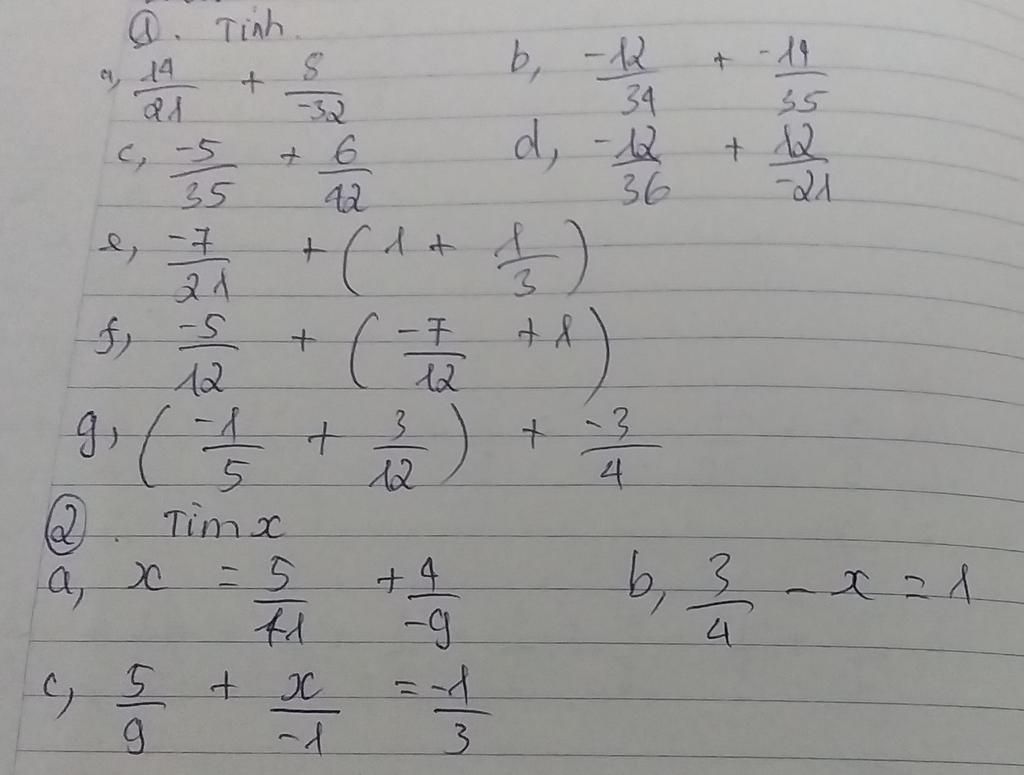 ①. Tính.
a, 14/21 + 8/-32 b, -12/34 + -14/35
c, -5/35 + 6/42 d, -12/36 + 12/-21
e, -7/21 + (1 + 1/3)
f, -5/12 + (-7/12 + 1)
g, (-1/5 + 3/12) + -3/4
②. Tìm x
a, x = 5/11 + 4/-9 b, 3/4 - x = 1
c, 5/9 + x/-1 = -1/3